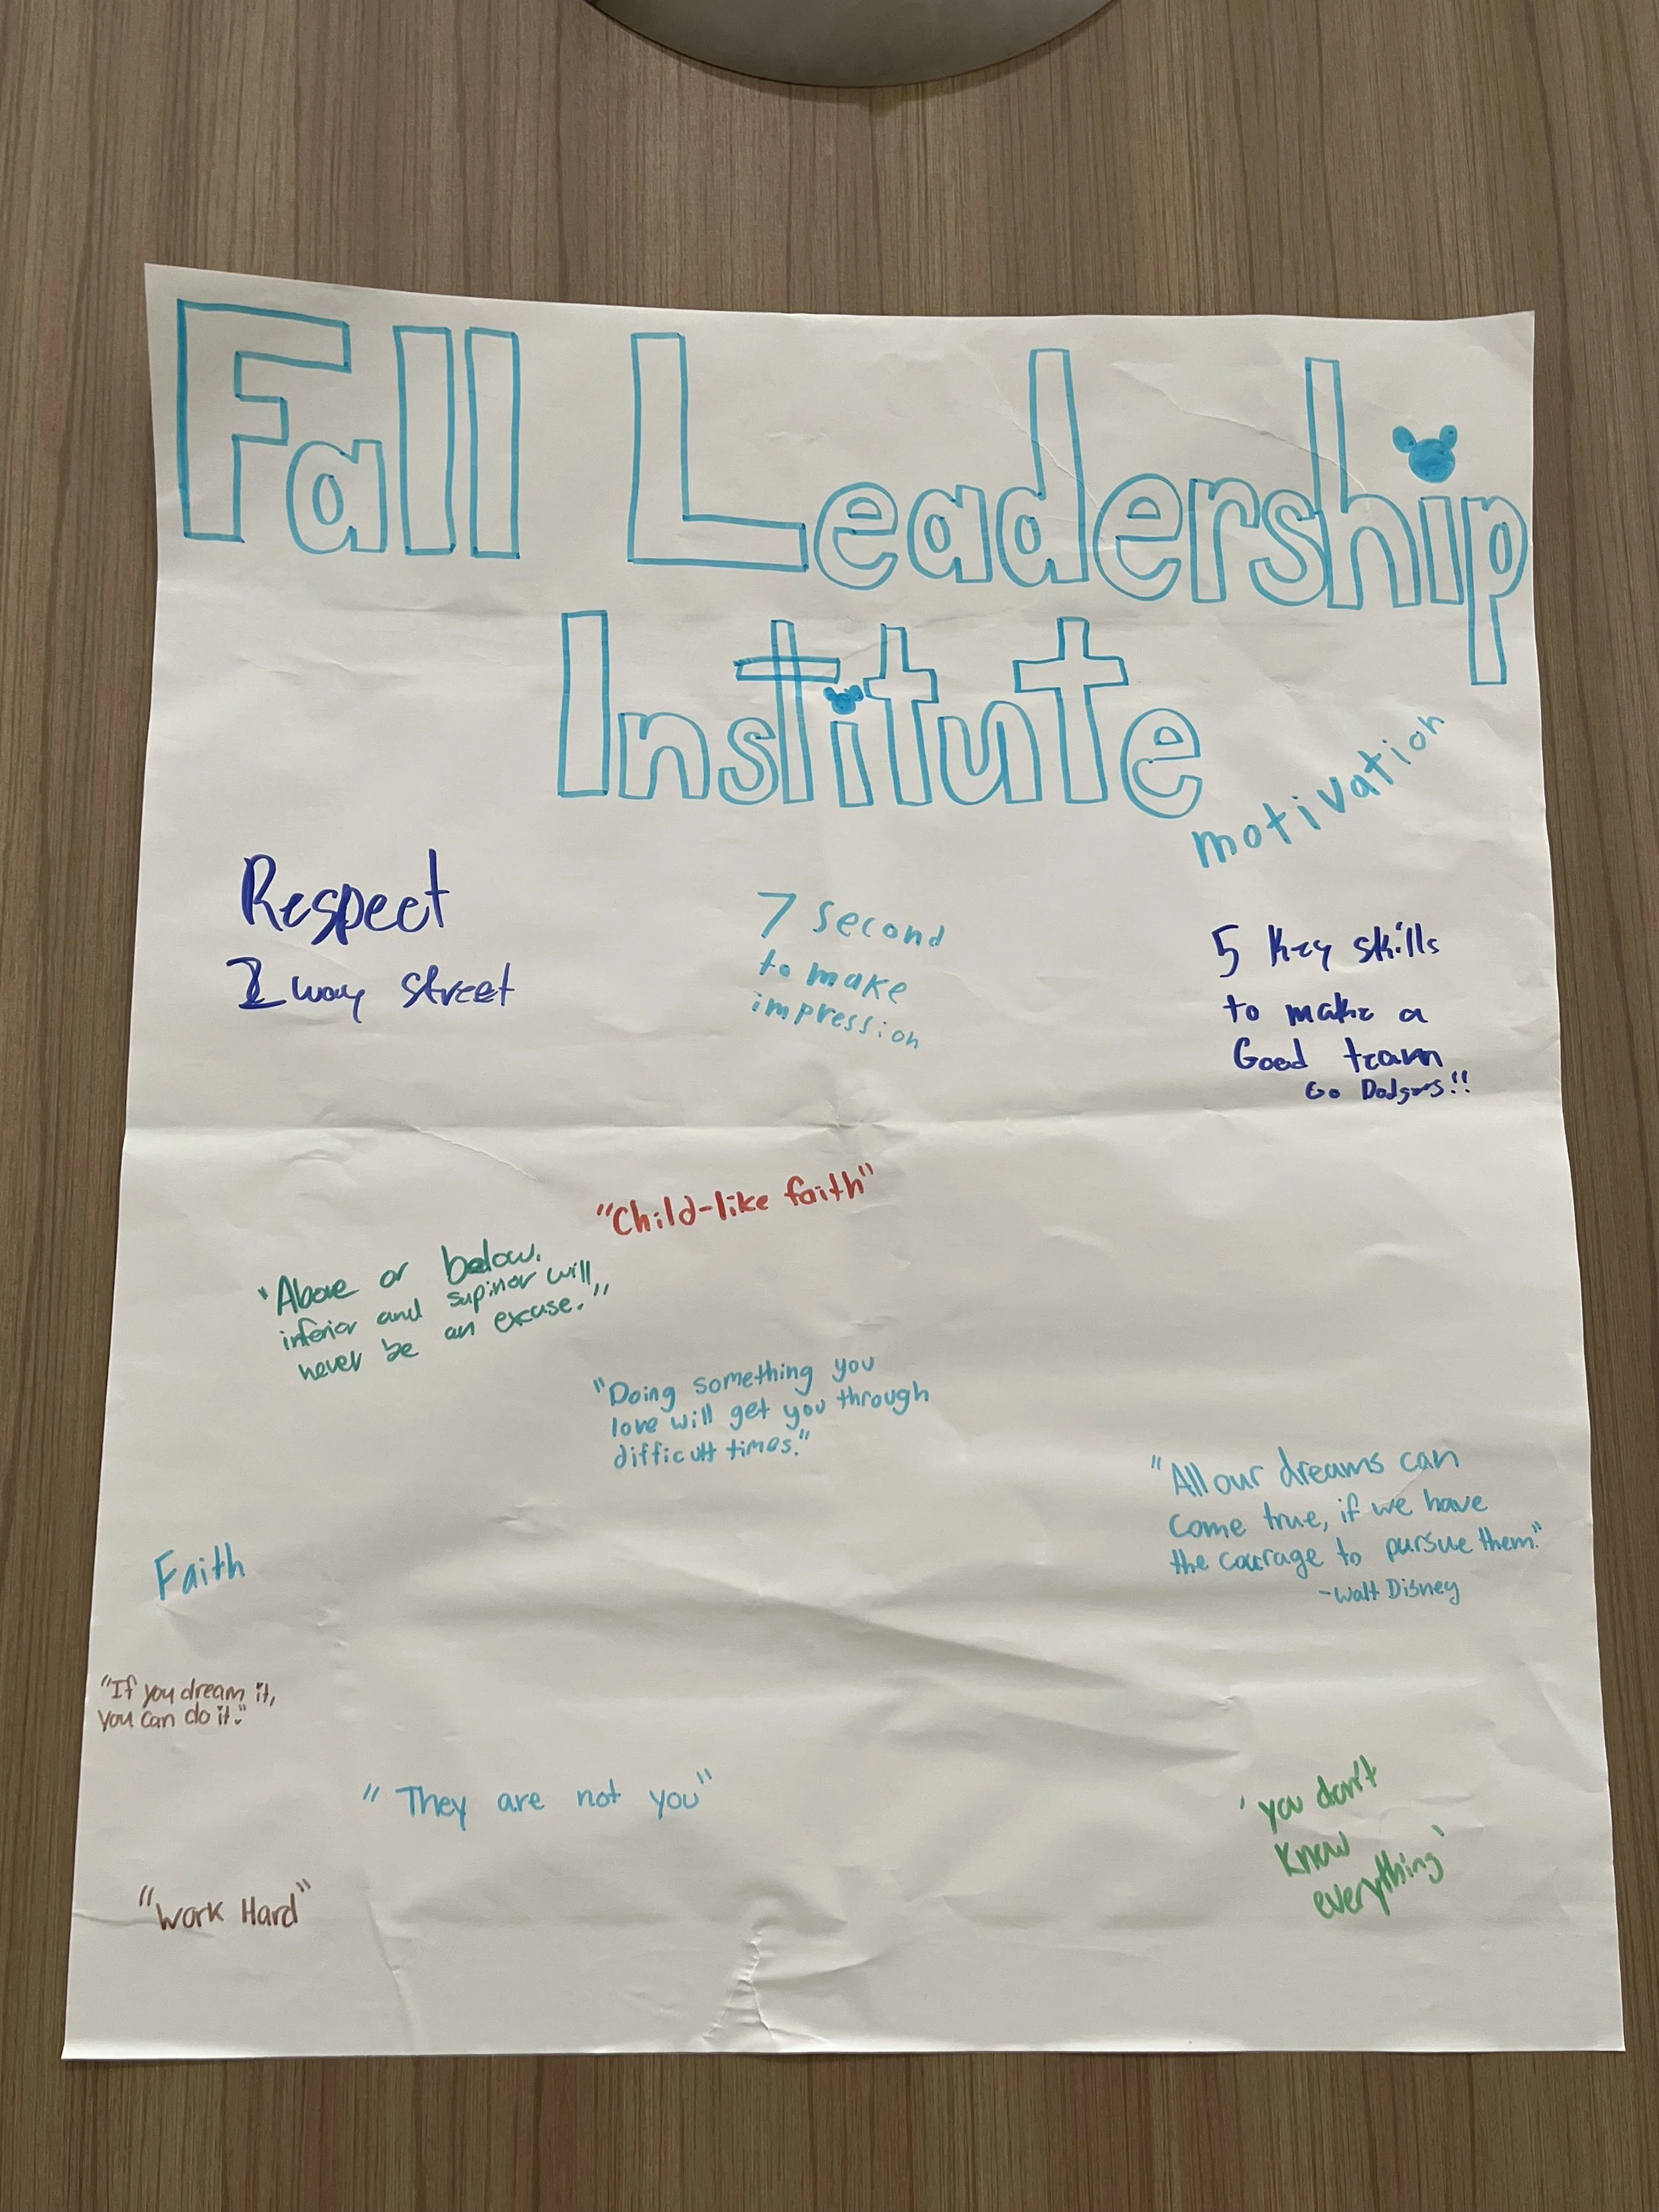 Fall Leadership
Institute
motivation
Respect
2 way street
7 second
to make
impression
5 key skills
to make a
Good team
Go Dodgers!!
"Child-like faith"
"Above or below,
inferior and supirior will
never be an excuse."
"Doing something you
love will get you through
difficult times."
"All our dreams can
come true, if we have
the courage to pursue them."
-Walt Disney
Faith
"If you dream it,
you can do it."
"They are not you"
'you don't
know
everything'
"Work Hard"